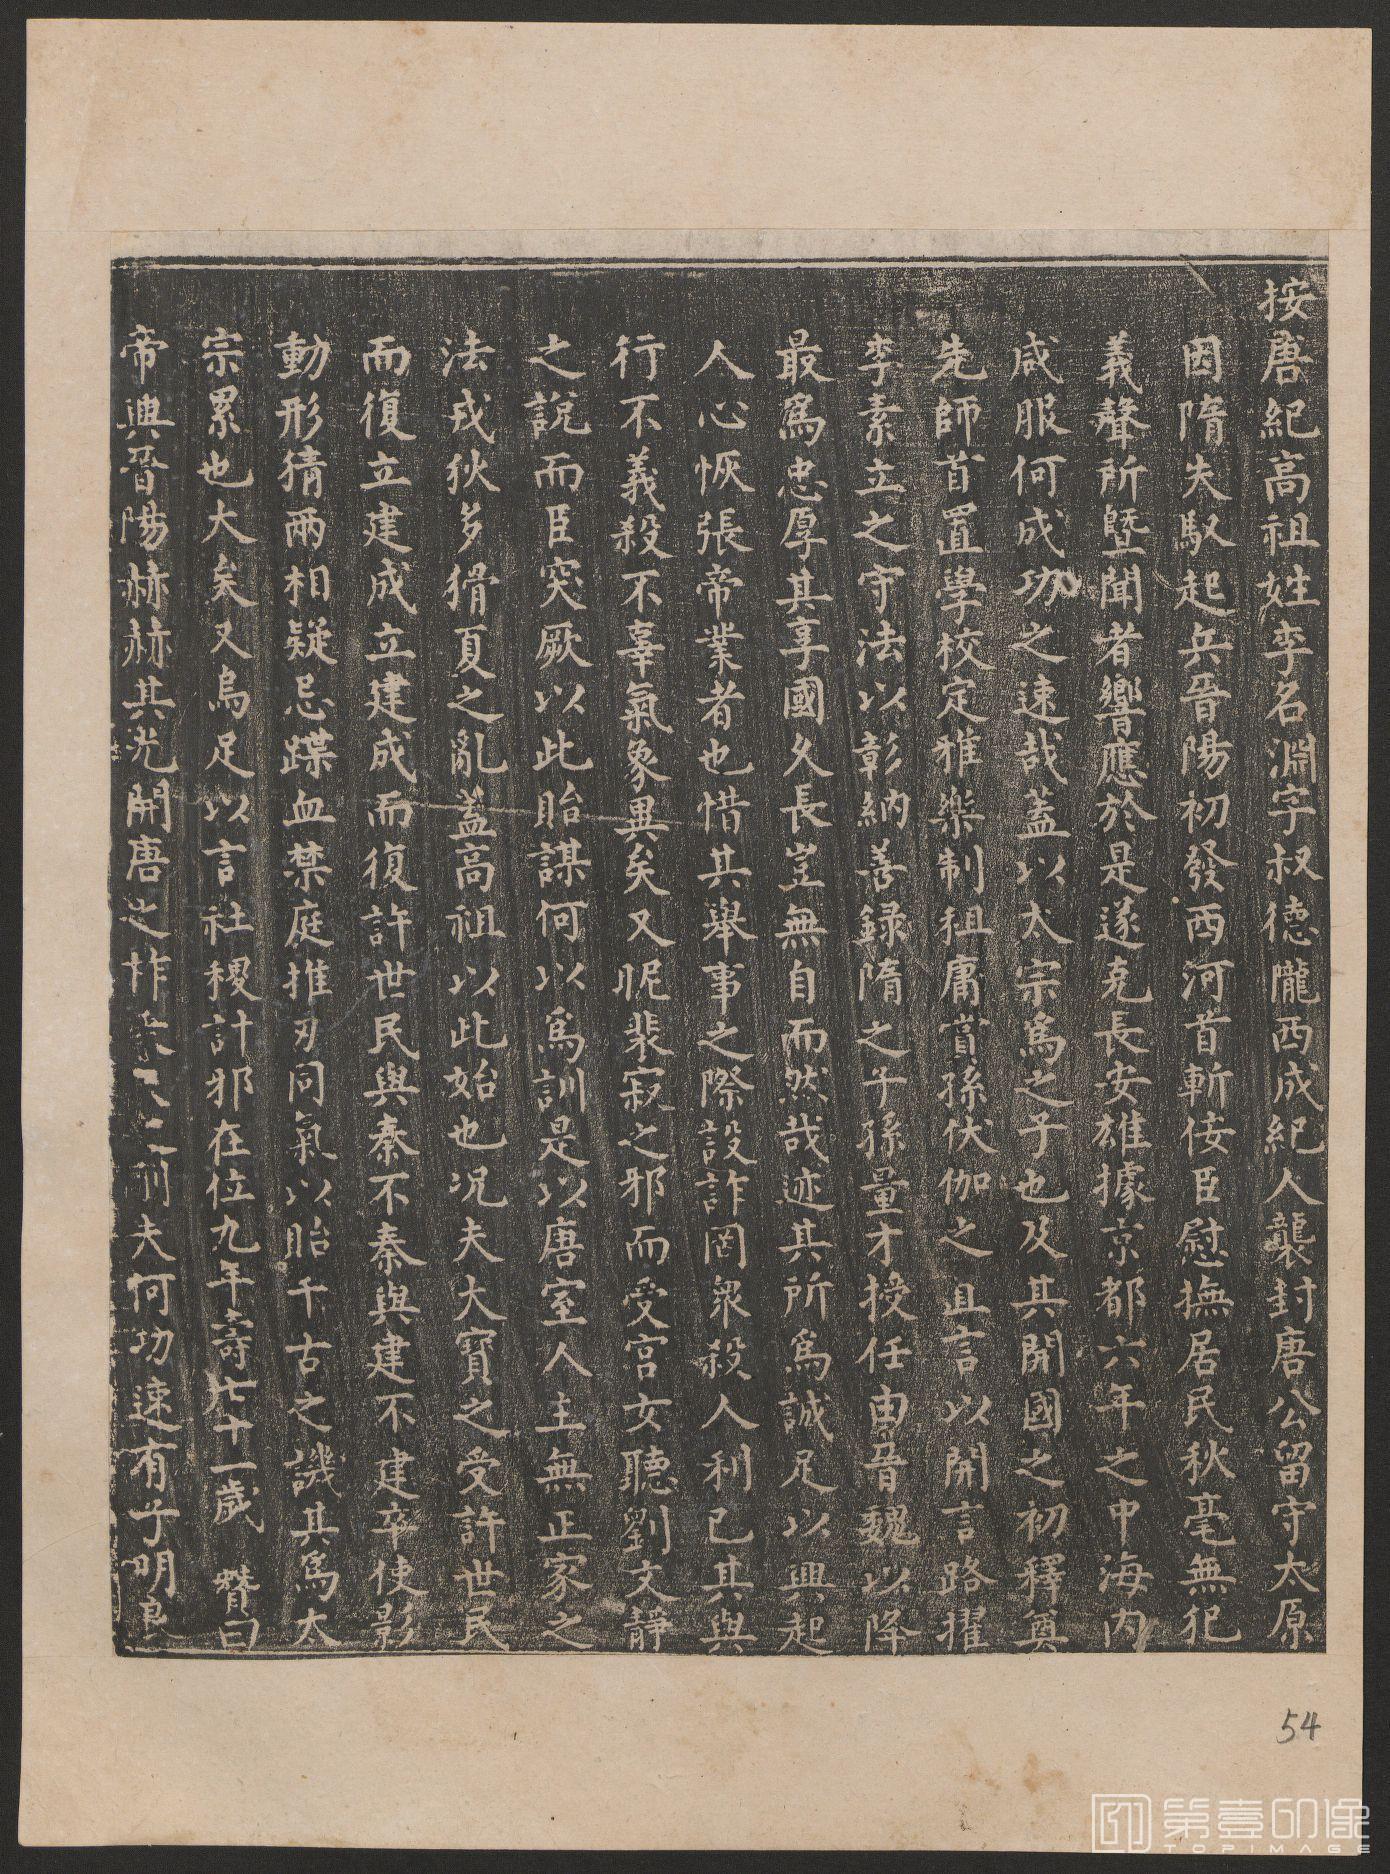 按唐紀高祖姓李名淵字叔德隴西成紀人襲封唐公留守太原
因隋失馭起兵晉陽初發西河首斬佞臣慰撫居民秋毫無犯
義聲所曁聞者響應於是遂克長安雄據京都六年之中海內
咸服何成功之速哉蓋以太宗爲之子也及其開國之初釋奠
先師首置學校定雅樂制租庸賞孫伏伽之直言以開言路擢
李素立之守法以彰納善錄隋之子孫量才授任由晉魏以降
最爲忠厚其享國久長豈無自而然哉迹其所爲誠足以興起
人心恢張帝業者也惜其舉事之際設詐罔衆殺人利已其與
行不義殺不辜氣象異矣又昵裴寂之邪而受宮女聽劉文靜
之說而臣突厥以此貽謀何以爲訓是以唐室人主無正家之
法戎狄多猾夏之亂蓋高祖以此始也况夫大寶之受許世民
而復立建成立建成而復許世民與秦不秦與建不建卒使影
動形猜兩相疑忌蹀血禁庭推刃同氣以貽千古之譏其爲大
宗累也大矣又烏足以言社稷計邪在位九年壽七十一歲 贊曰
帝興晉陽赫赫其光開唐之祚夫何功速有子明良
54
第壹印像
TOPIMAGE